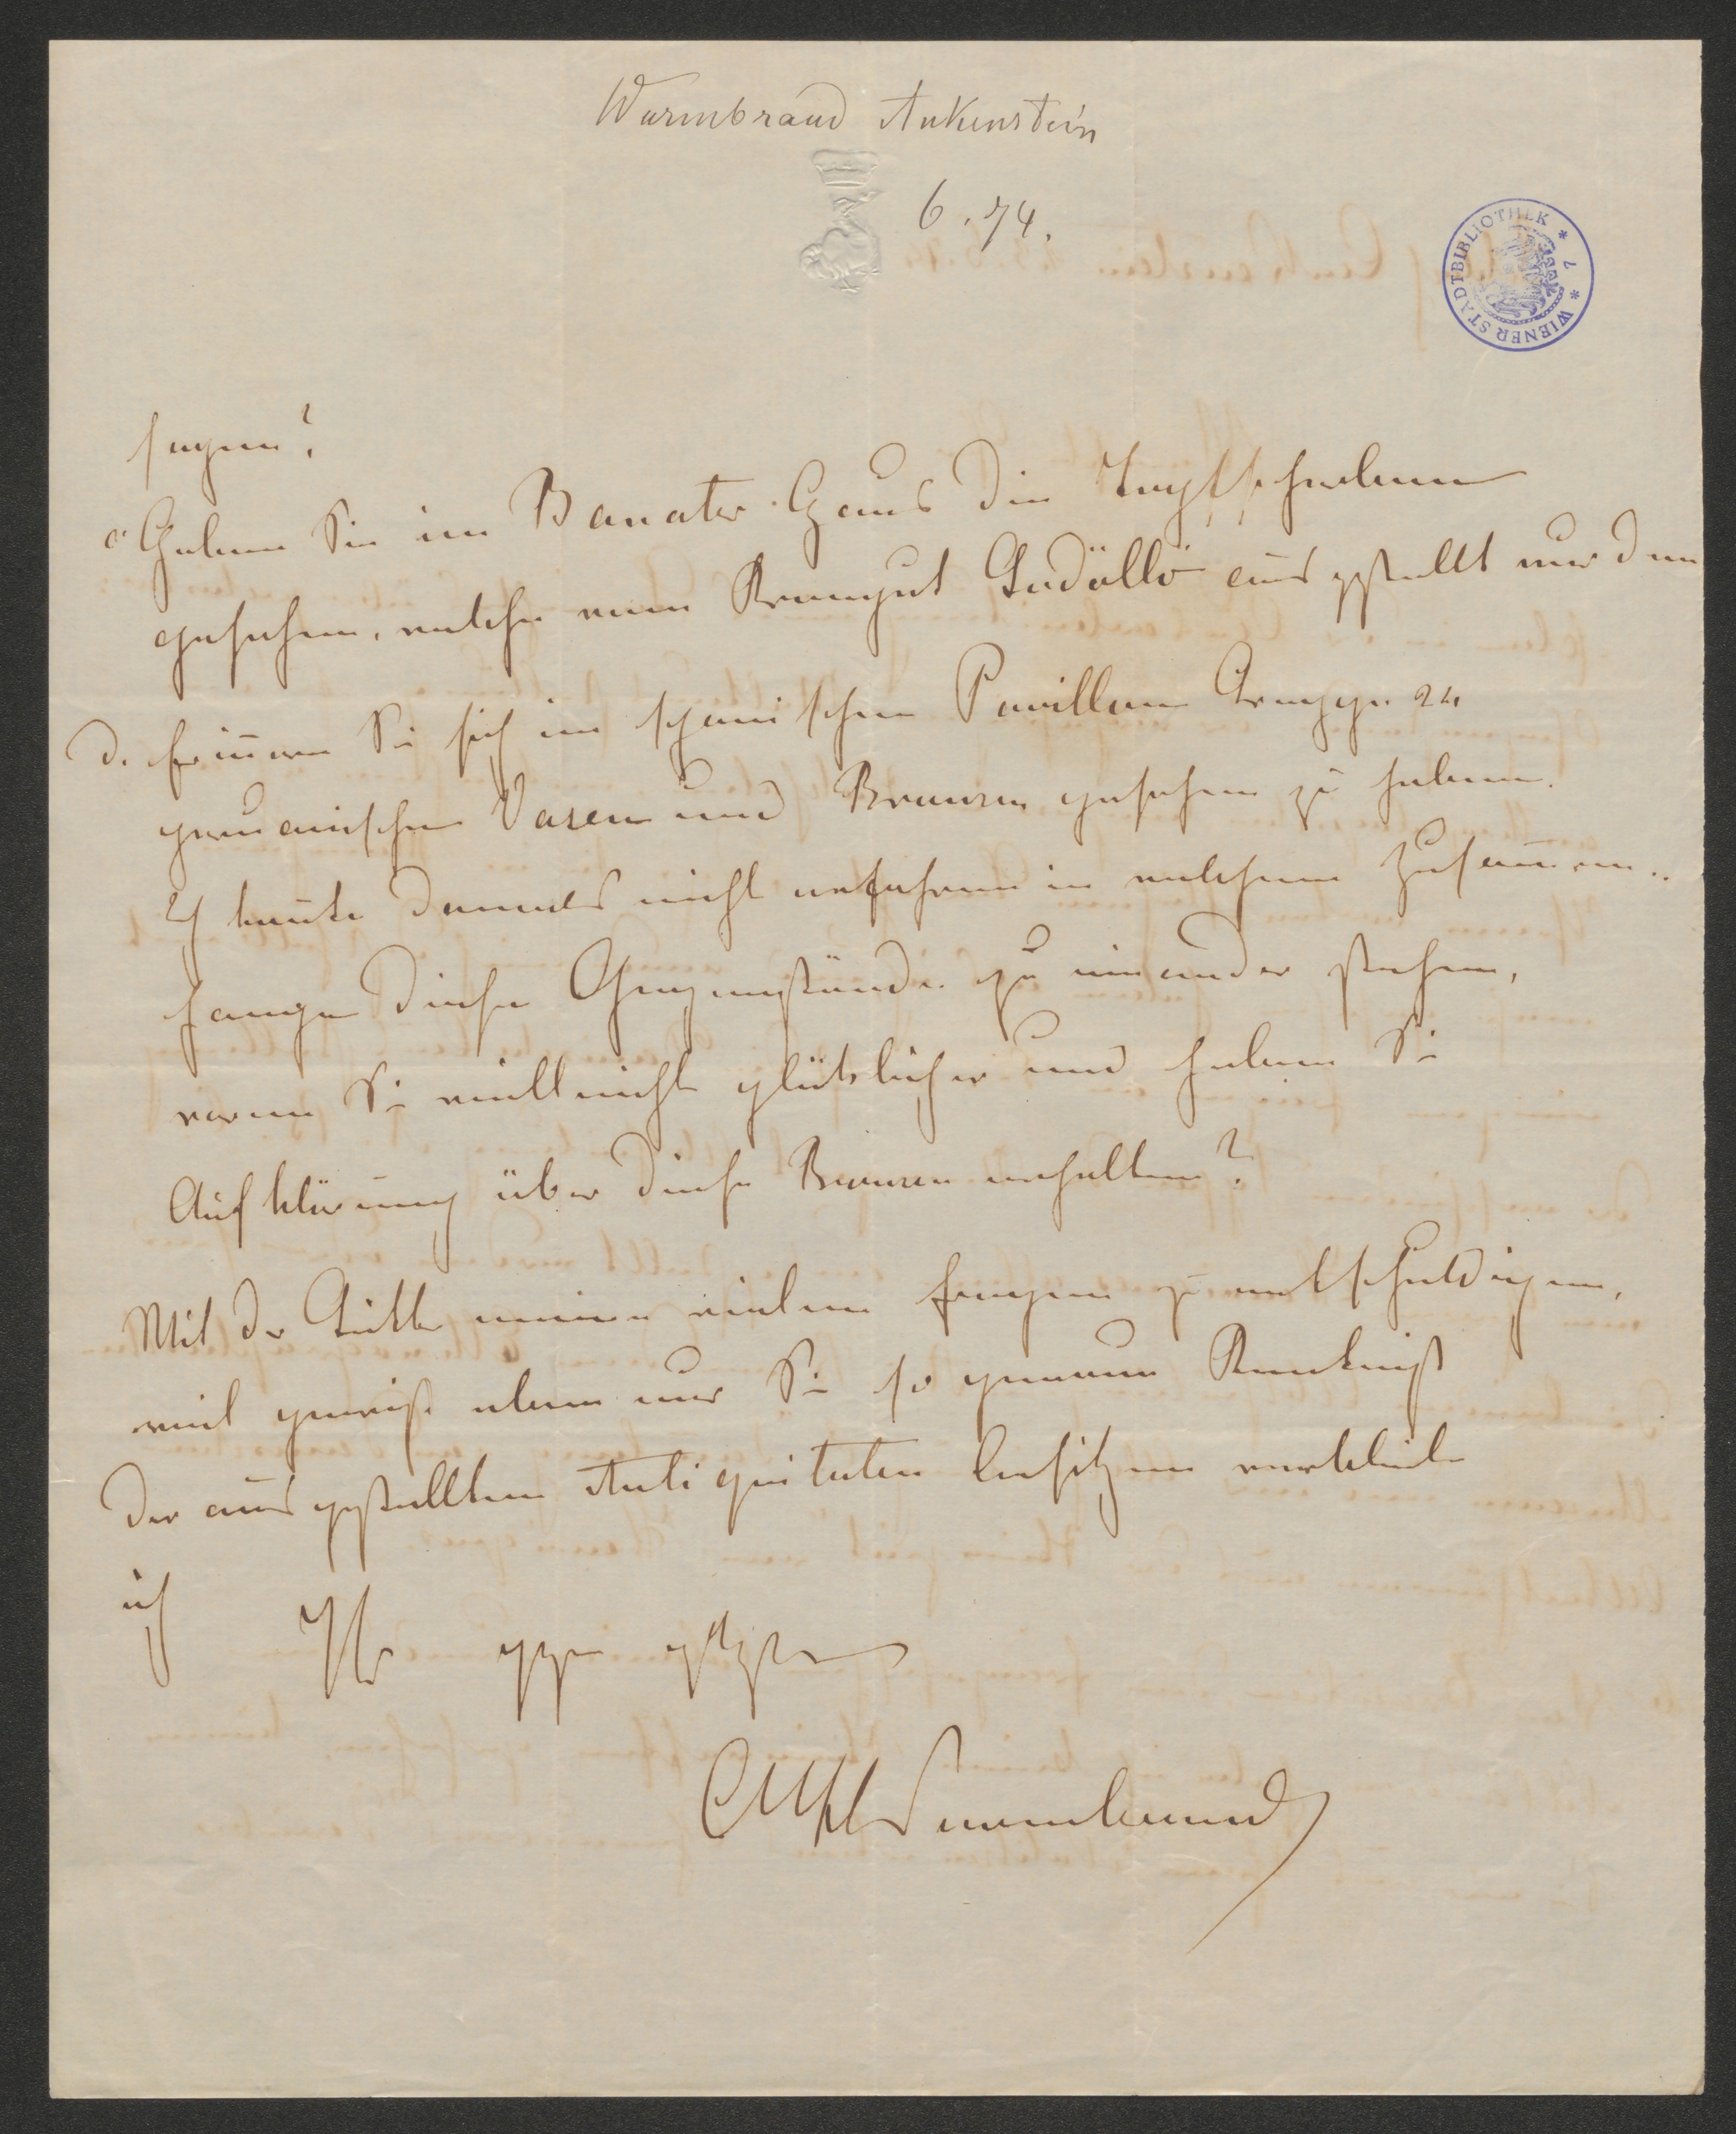 Wurmbrand Ankenstein
6.74.
WIENER STADTBIBLIOTHEK
sagen?
c Haben Sie im Banater Haus die Topfscherben
gesehen, welche vom Krongut Gödöllö ausgestellt wurden
d. Erinnern Sie sich im spanischen Pavillon Gruppe 24
peruanische Vasen und Bronzen gesehen zu haben.
Ich konnte damals nicht erfahren in welchem Zusammen..
hange diese Gegenstände zu einander stehen,
waren Sie vielleicht glücklicher und haben Sie
Aufklärung über diese Bronzen erhalten?
Mit der Bitte meine vielen Fragen zu entschuldigen,
weil gewiß eben nur Sie so genaue Kenntniß
der ausgestellten Antiquitäten besitzen verbleibe
ich Ihr
Wurmbrand